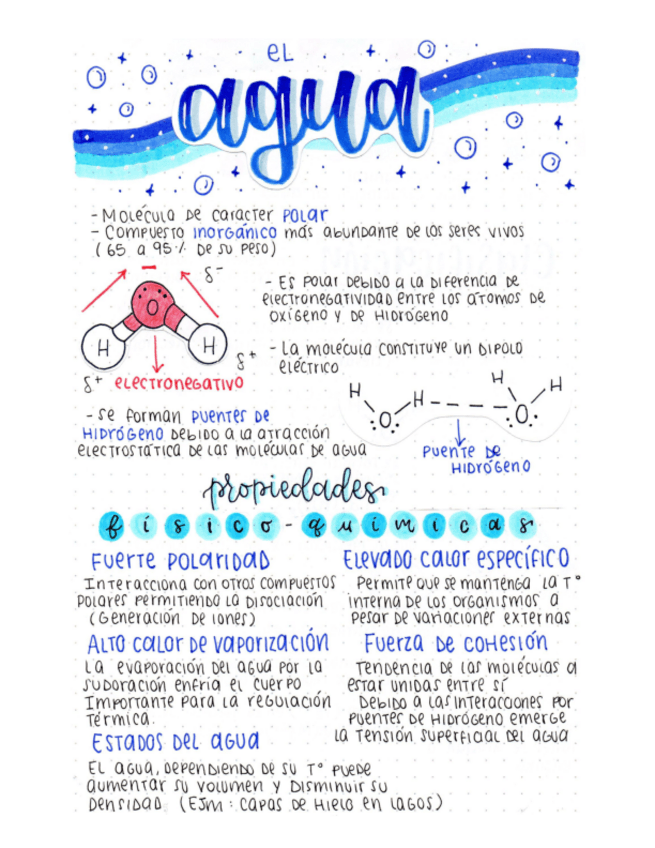 EL
agua
- Molécula de caracter polar
- Compuesto inorgánico más abundante de los seres vivos
(65 a 95% de su peso)
δ-
- Es polar debido a la diferencia de
electronegatividad entre los átomos de
oxígeno y de hidrógeno
O
H H
δ+
δ+ electronegativo
- La molécula constituye un dipolo
eléctrico
H H H H
O O
- Se forman puentes de
hidrógeno debido a la atracción
electrostática de las molécular de agua
Puente de
hidrógeno
propiedades
físico-químicas
Fuerte polaridad
Interacciona con otros compuestos
polares permitiendo la disociación
(Generación de iones)
Elevado calor específico
Permite que se mantenga la T°
interna de los organismos a
pesar de variaciones externas
Alto calor de vaporización
La evaporación del agua por la
sudoración enfría el cuerpo
Importante para la regulación
térmica.
Fuerza de cohesión
Tendencia de las moléculas a
estar unidas entre sí
Debido a las interacciones por
puentes de hidrógeno emerge
la tensión superficial del agua
Estados del agua
El agua, dependiendo de su T° puede
aumentar su volumen y disminuir su
densidad (Ejm: capas de hielo en lagos)